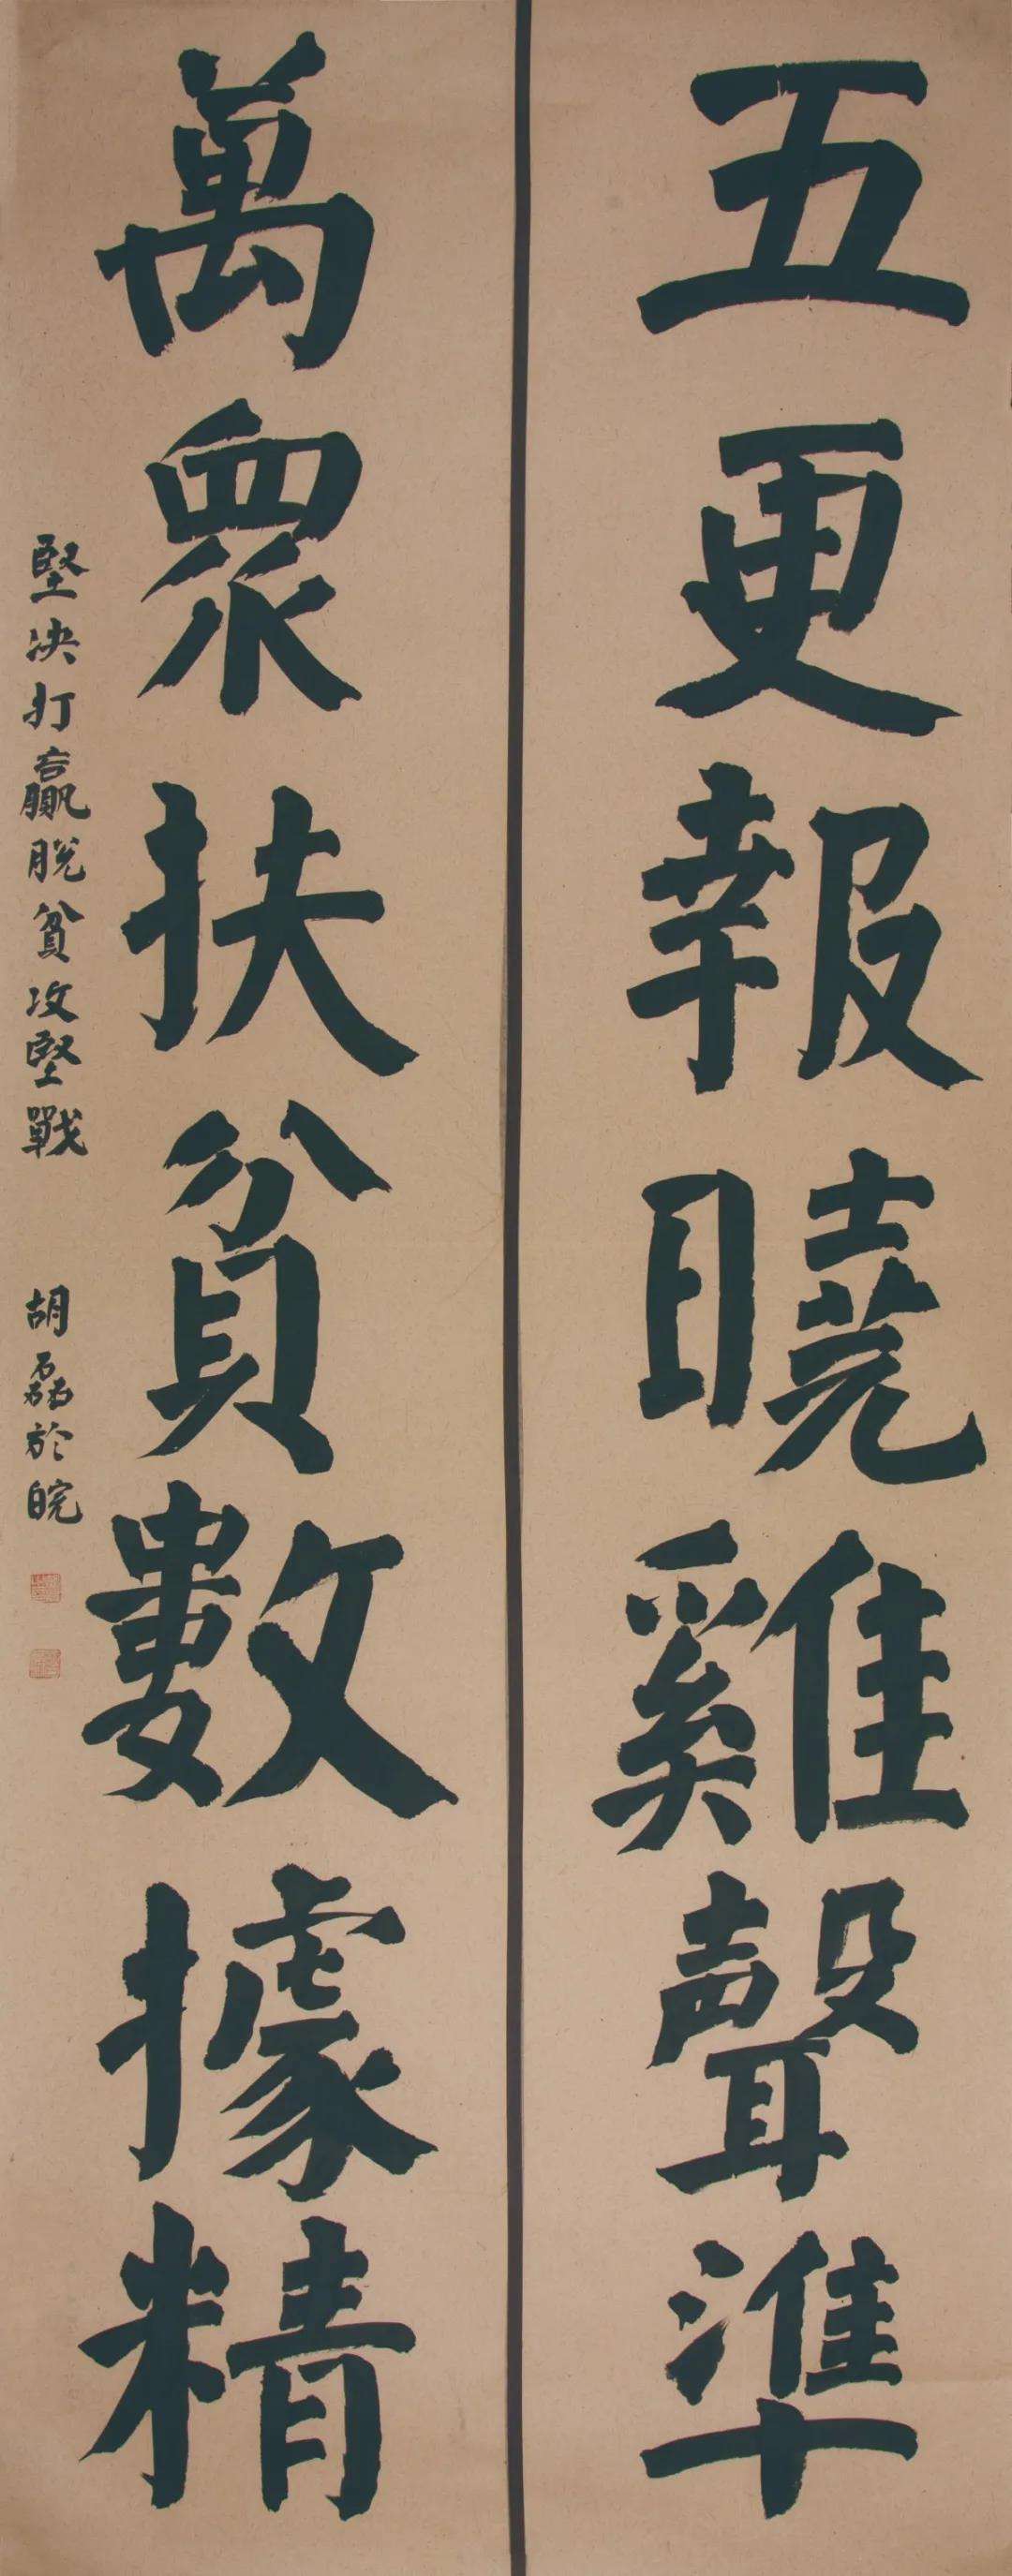 五更報曉雞聲準
萬眾扶貧數據精
堅决打贏脫貧攻堅戰 胡磊於皖